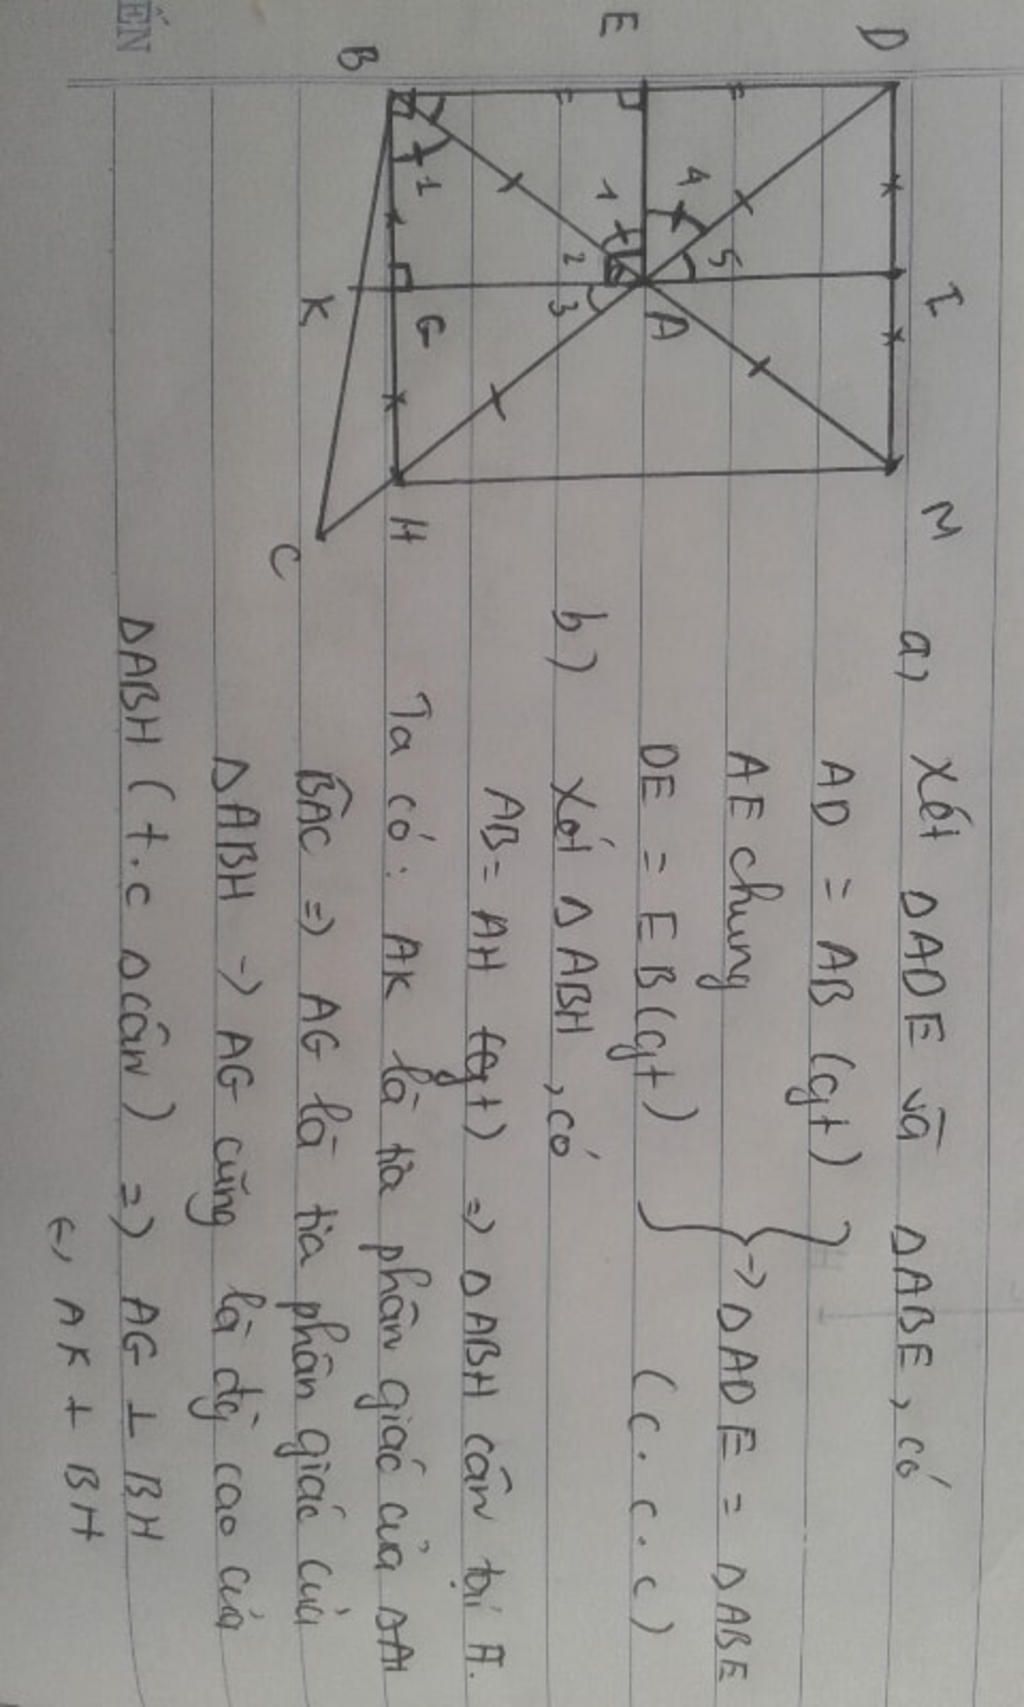 ẾN
D
E
B
I
M
4
5
1
2
3
1
A
G
K
H
C
a) Xét ΔADE và ΔABE, có
AD = AB (gt)
AE chung
→ ΔADE = ΔABE
DE = EB (gt)
(c.c.c)
b) Xét ΔABH, có
AB = AH (gt) => ΔABH cân tại A.
Ta có: AK là tia phân giác của
BÂC => AG là tia phân giác của
ΔABH → AG cũng là đg cao của
ΔABH (t.c Δ cân) => AG ⊥ BH
AK ⊥ BH